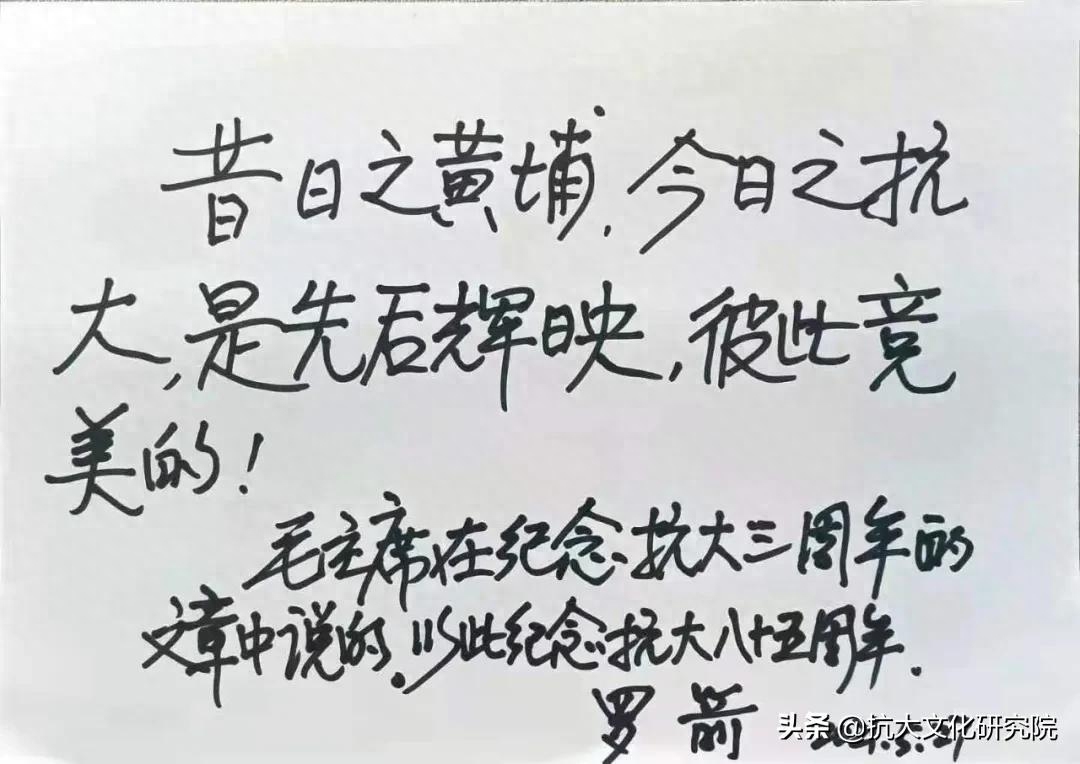 昔日之黄埔,今日之抗
大,是先后辉映,彼此竞
美的!
毛主席在纪念抗大三周年的
文章中说的.以此纪念抗大八十五周年.
罗箭
头条 @抗大文化研究院